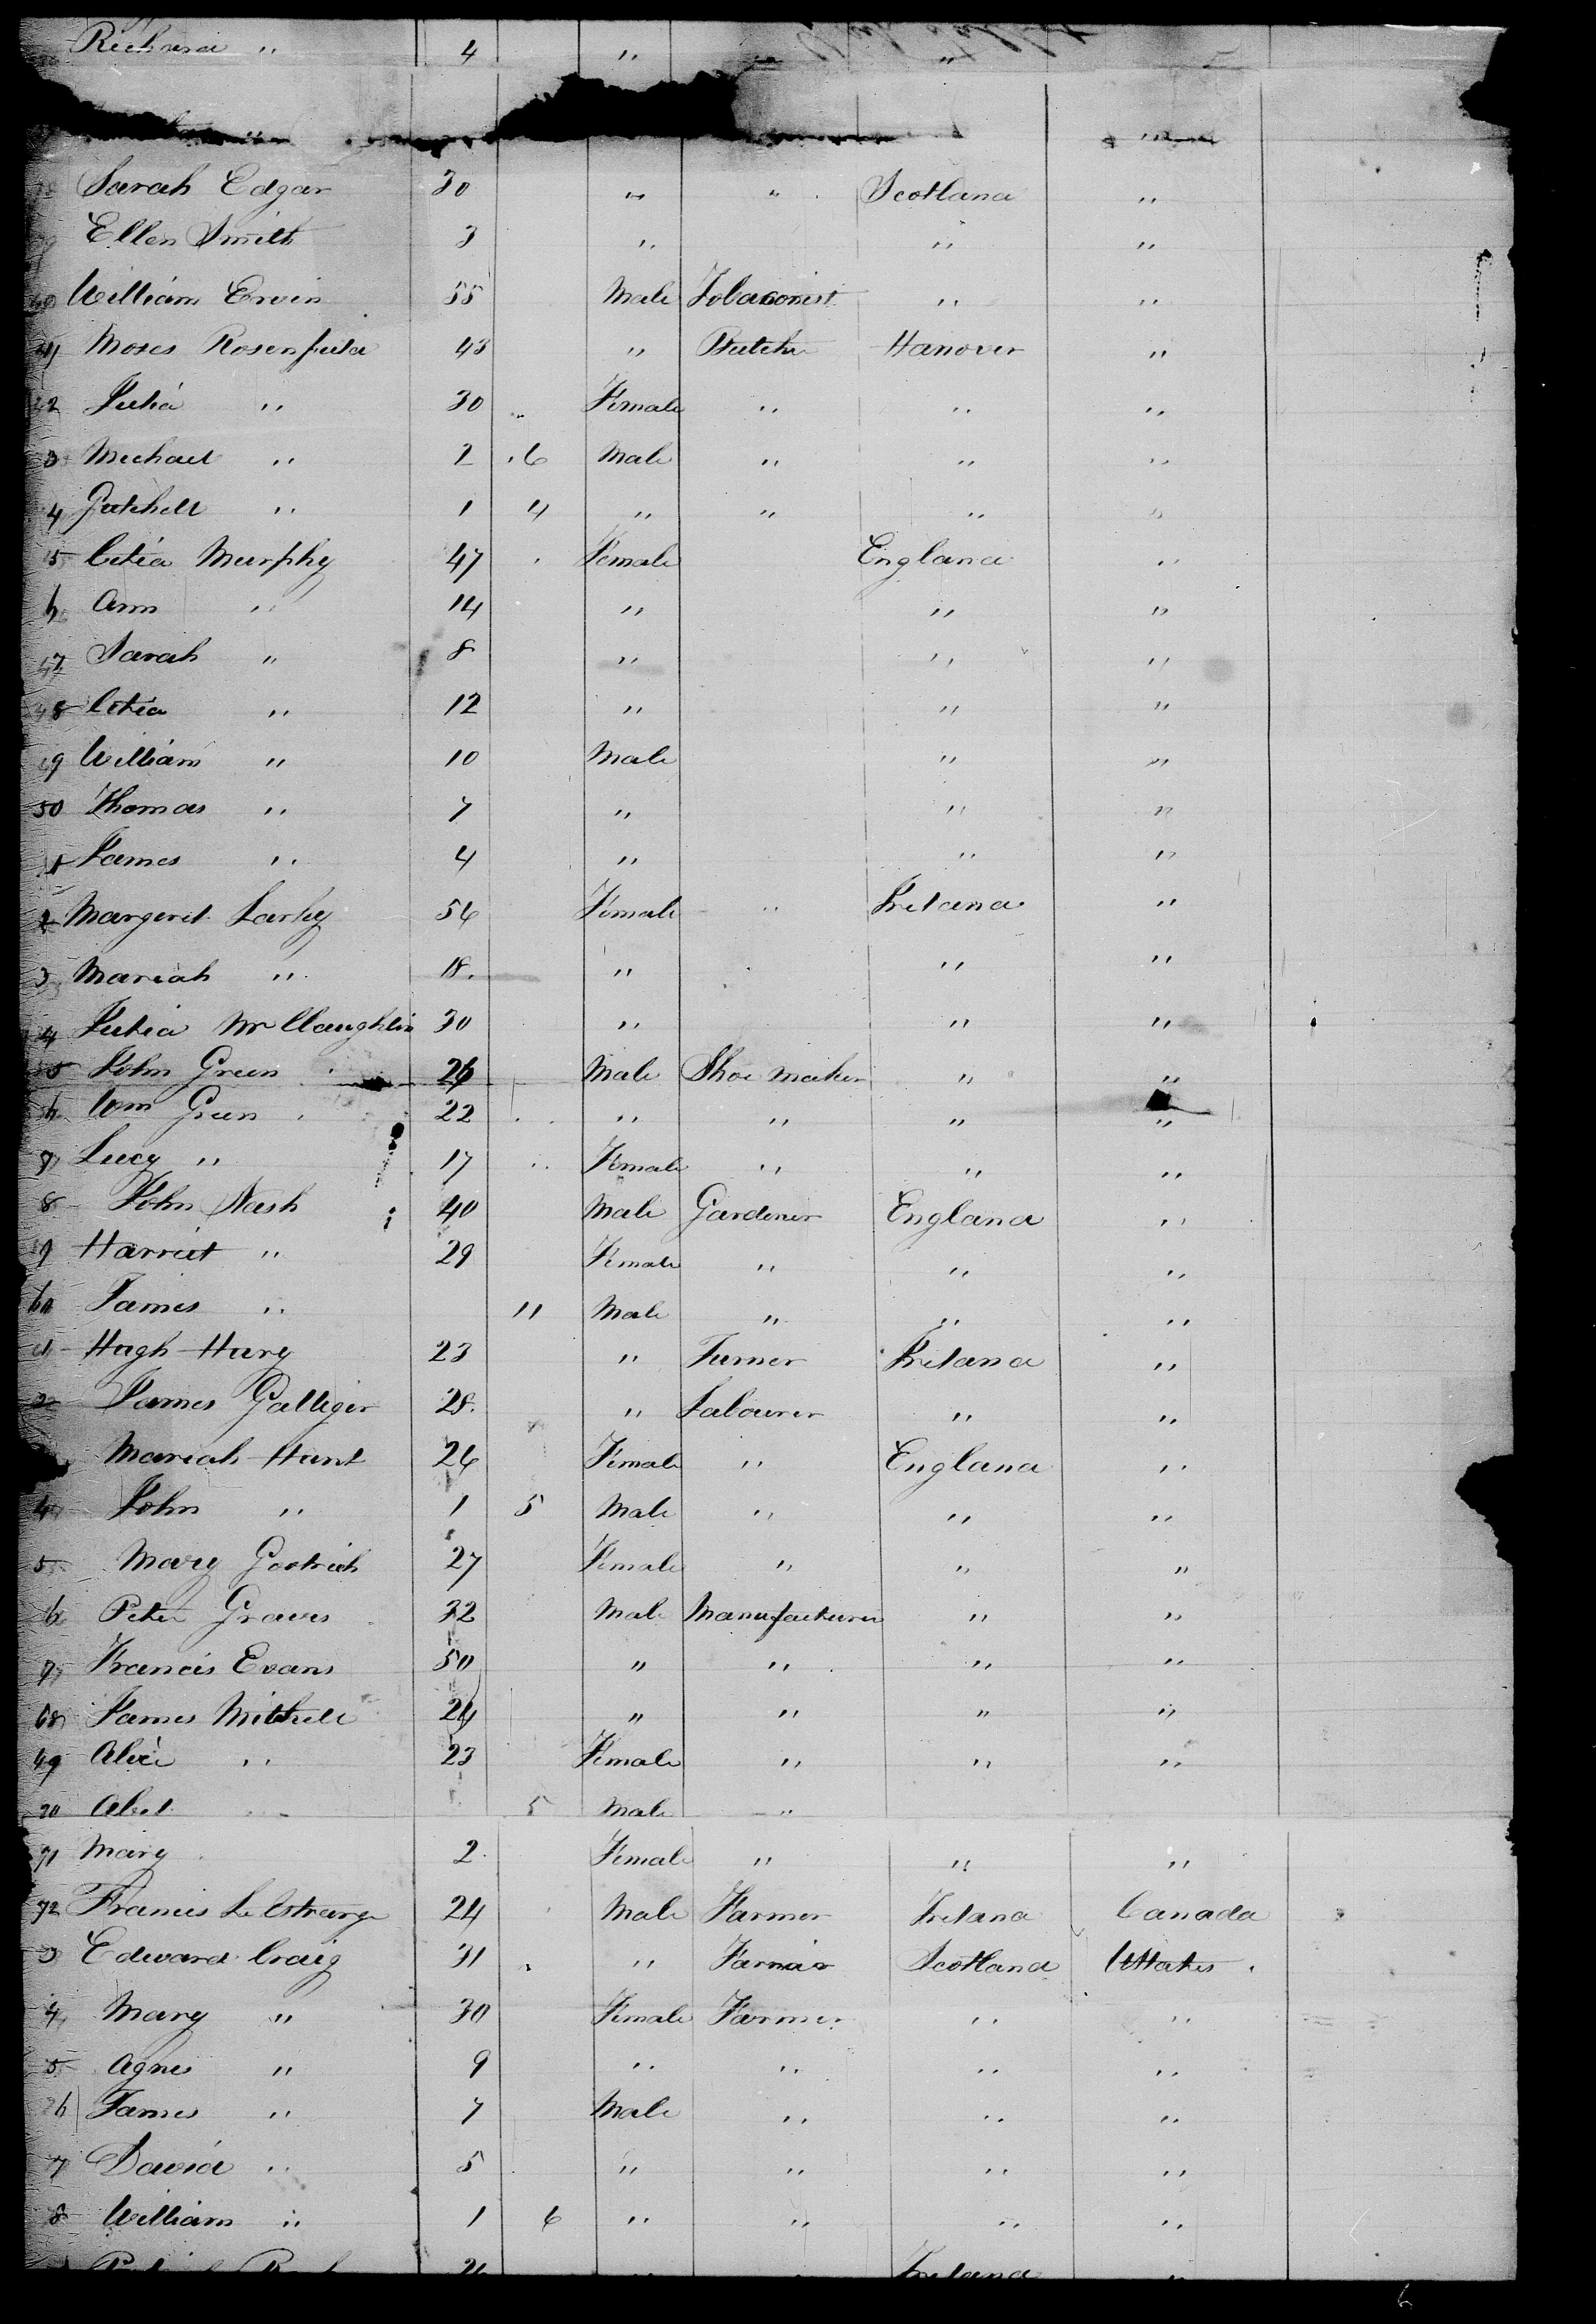 Richard " 4 " " "
Sarah Edgar 30 " " Scotland "
Ellen Smith 3 " " "
40 William Ervin 55 Male Tobaconist " "
41 Moses Rosenfield 43 " Butcher Hanover "
42 Julia " 30 Female " " "
3 Michael " 2 6 Male " " "
4 " 1 4 " " " "
5 Murphy 47 Female England "
6 Ann " 14 " " "
47 Sarah " 8 " " "
48 " 12 " " "
49 William " 10 Male " "
50 Thomas " 7 " " "
1 James " 4 " " "
2 Margeret Larhy 56 Female " Ireland "
3 Mariah " 18 " " "
4 Julia McLlaughlin 30 " " "
5 John Green 26 Male Shoe Maker " "
6 Wm Green 22 " " " "
7 Lucy " 17 Female " " "
8 John Nash 40 Male Gardener England "
9 Harriet " 29 Female " " "
60 James " 11 Male " " "
61 Hugh Hary 23 " Turner Ireland "
2 James Galliger 28 " Labourer " "
Mariah Hunt 26 Female " England "
4 John " 1 5 Male " " "
5 Mary Gostrich 27 Female " " "
6 Peter Graves 32 Male Manufacturer " "
7 Francis Evans 50 " " " "
68 James Mitchell 24 " " " "
69 Alice " 23 Female " " "
70 Abel " 5 Male "
71 Mary 2 Female " " "
72 Francis LeEstrange 24 Male Farmer Ireland Canada
3 Edward Craig 31 " Farmer Scotland UStates
4 Mary " 30 Female Farmer " "
5 Agnes " 9 " " " "
76 James " 7 Male " " "
7 David " 5 " " " "
8 William " 1 6 " " " "
Ireland "
6